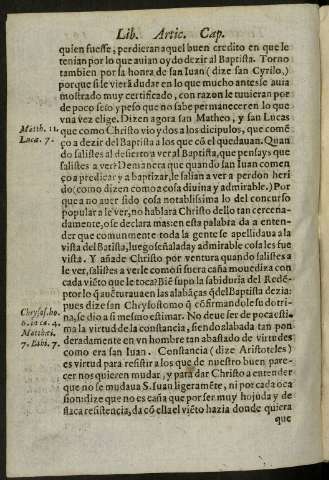 Lib. Artic. Cap.
quien fuesse, perdieran aquel buen credito en que le
tenian por lo que auian oydo dezir al Baptista. Torno
tambien por la honra de san Iuan (dize san Cyrilo,)
porque si le vierā dudar en lo que mucho antes le auia
mostrado muy certificado, con razon le tuuieran por
de poco seso y peso que no sabe permanecer en lo que
vna vez elige. Dizen agora san Matheo, y san Lucas
Matth. 11.
Luca. 7.
que como Christo vio ydos a los dicipulos, que comē
ço a dezir del Baptista a los que cō el quedauan. Quan
do salistes al desierto a ver al Baptista, que pensays que
salistes a ver? De manera que quando san Iuan comen
ço a predicar y a baptizar, le salian a ver a perdon heri
do (como dizen como a cosa diuina y admirable.) Por
que a no auer sido cosa notabilissima lo del concurso
popular a le ver, no hablara Christo dello tan cercena-
damente, o se declara mas en esta palabra da a enten-
der que comunmente toda la gente se apellidaua a la
vista del Batista, luego señalada y admirable cosa les fue
vista. Y añade Christo por ventura quando salistes a
le ver, salistes a verle como si fuera caña mouediza con
cada viēto que le toca? Biē supo la sabiduria del Redē-
ptor lo q̄ auēturaua en las alabāças q̄ del Baptista dezia:
pues dize san Chrysostomo q̄ cōfirmando le su dotri-
Chrysos. ho.
6. in ca. 4.
Matthæi.
7. Labi. 7.
na, se dio a si mesmo estimar. No deue ser de poca esti-
ma la virtud de la constancia, siendo alabada tan pon
deradamente en vn hombre tan abastado de virtudes
como era san Iuan. Constancia (dize Aristoteles)
es virtud para resistir a los que de nuestro buen pare-
cer nos quieren mudar, y para dar Christo a entender
que no se mudaua S. Iuan ligeramēte, ni por cada oca
sion: dize que no es caña que por ser muy hojuda y de
flaca resistencia, da cō ella el viēto hazia donde quiera
que